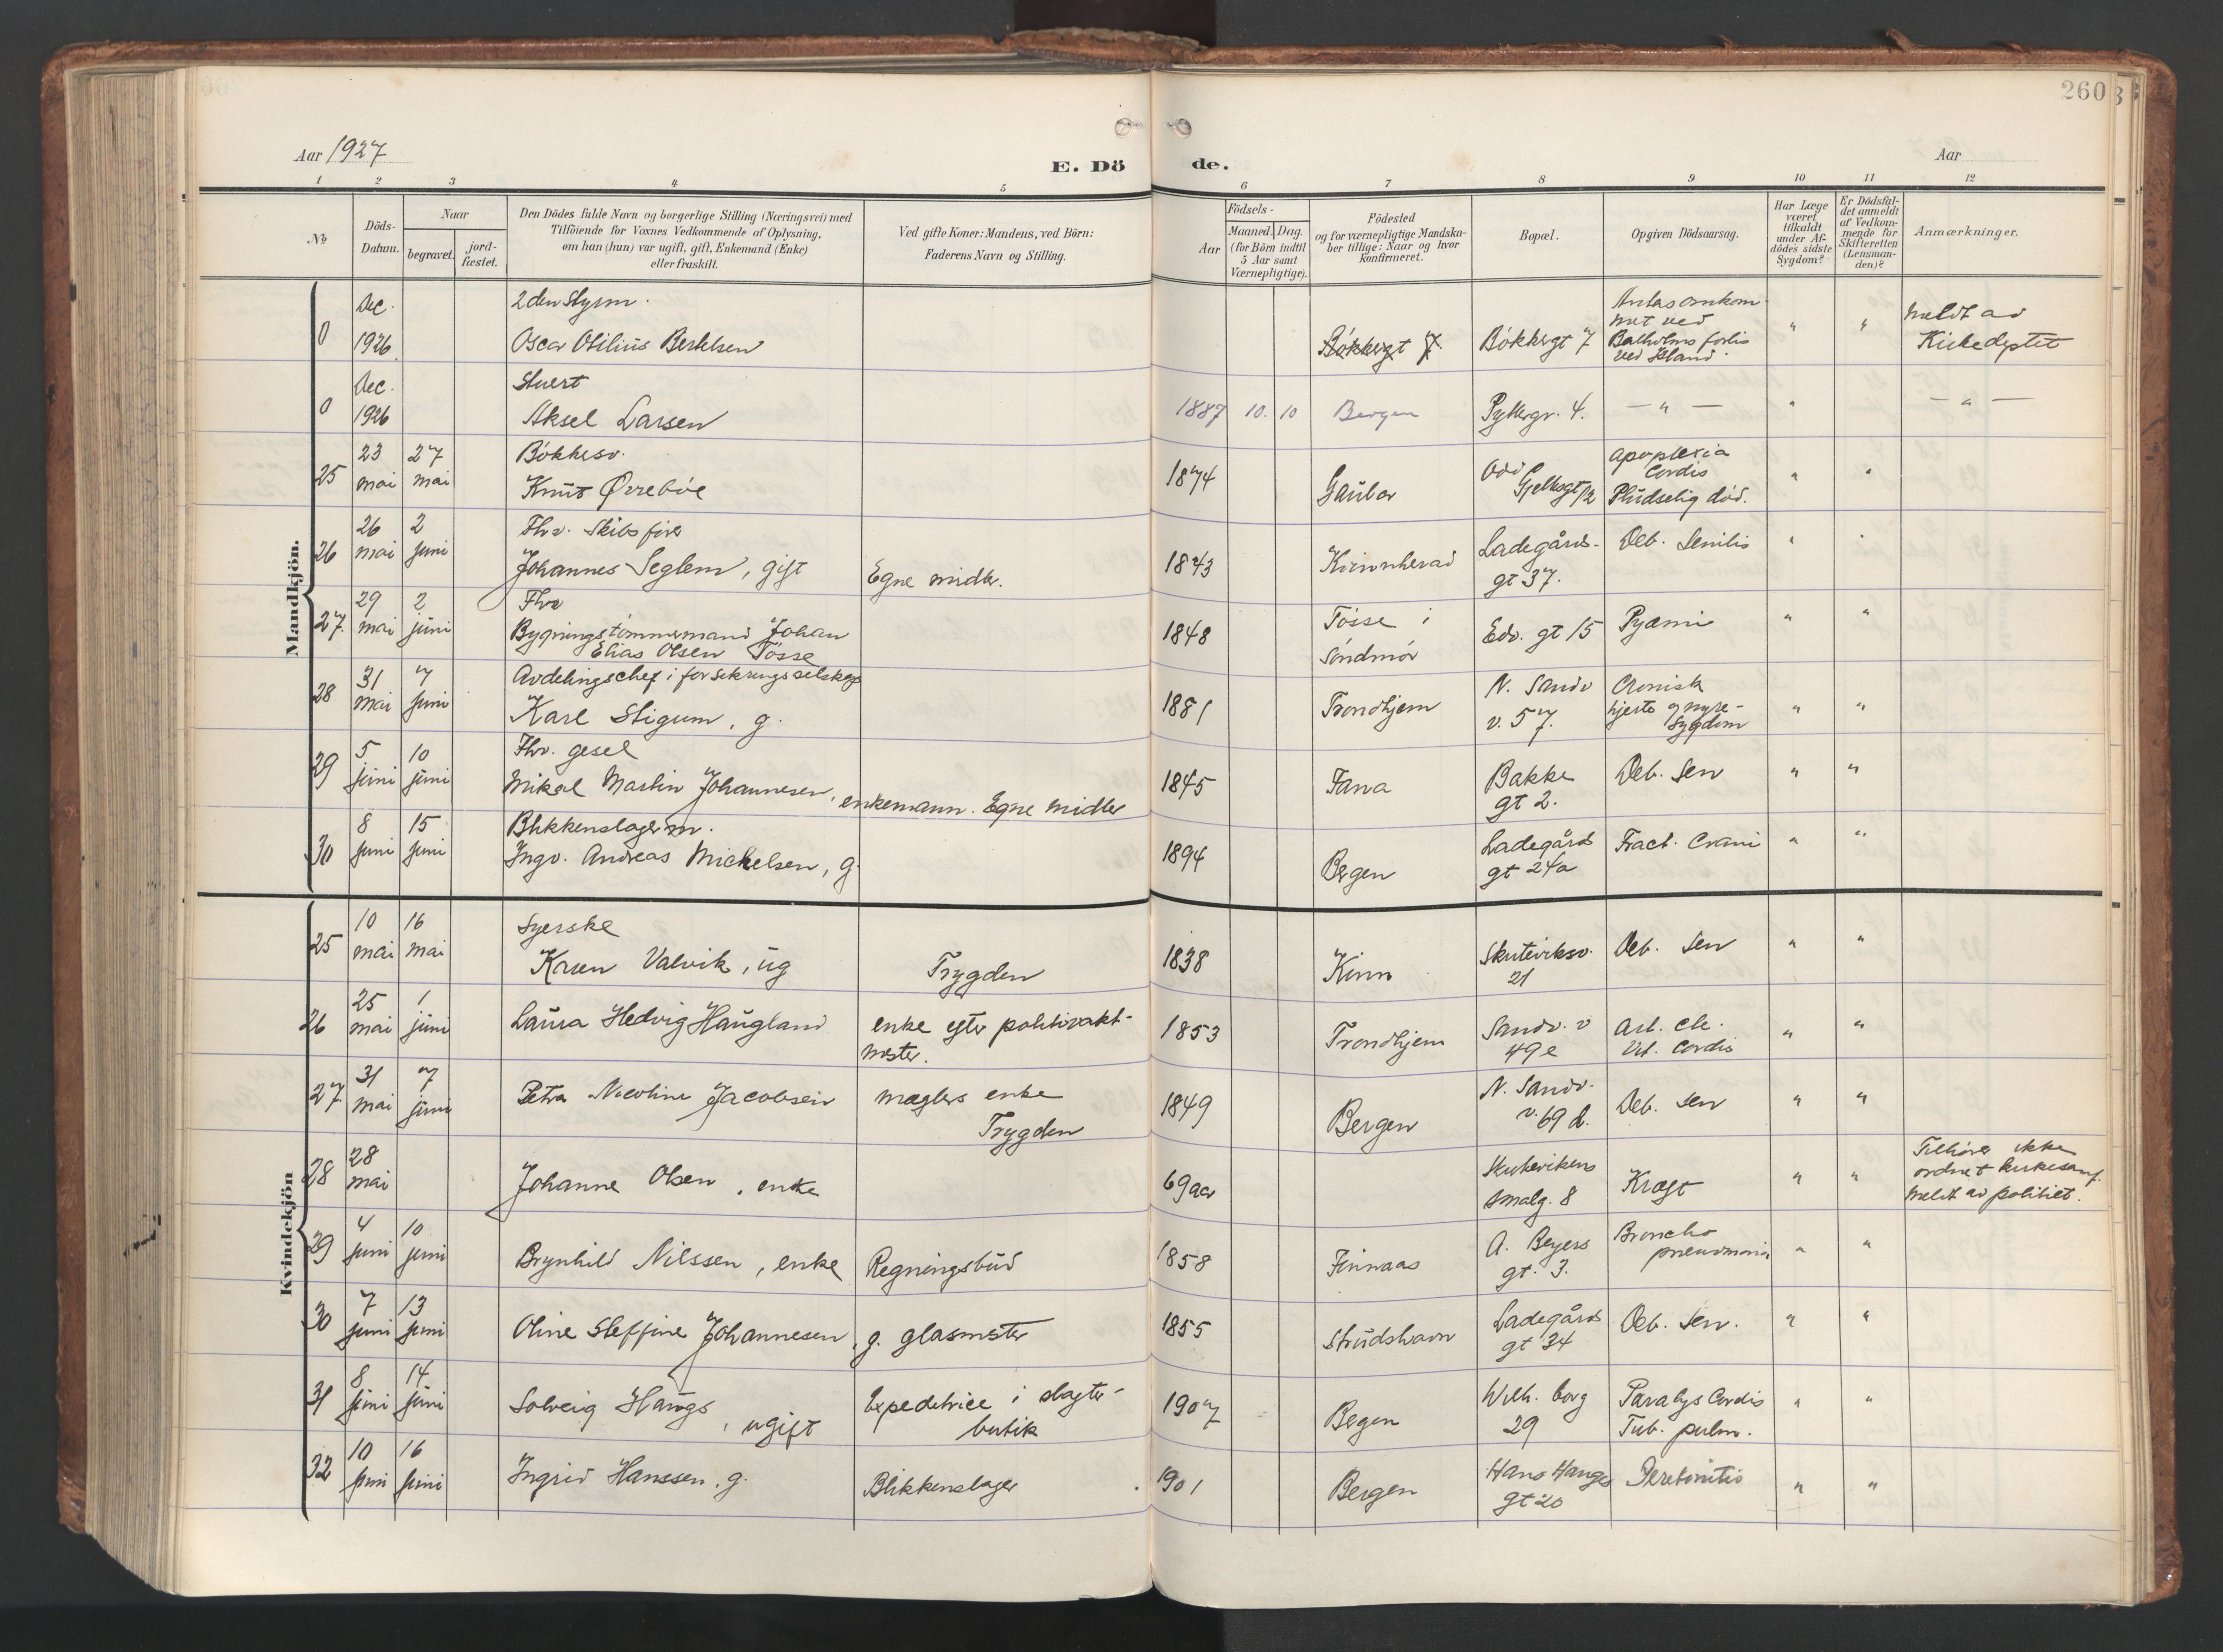 260
Aar 1927
E. Dö de.
Aar
1 2 3 4 5 6 7 8 9 10 11 12
No
Döds-Datum.
Naar
begravet.
jord-fæstet.
Den Dödes fulde Navn og borgerlige Stilling (Næringsvei) med
Tilföiende for Voxnes Vedkommende af Oplysning,
om han (hun) var ugift, gift, Enkemand (Enke)
eller fraskilt.
Ved gifte Koner: Mandens, ved Börn:
Faderens Navn og Stilling.
Födsels-
Aar
Maaned. Dag.
(for Börn indtil
5 Aar samt
Værnepligtige).
Födested
og for værnepligtige Mandska-
ber tillige: Naar og hvor
konfirmeret.
Bopæl.
Opgiven Dödsaarsag.
Har Læge
været
tilkaldt
under Af-
dödes sidste
Sygdom?
Er Dödsfal-
det anmeldt
af Vedkom-
mende for
Skifteretten
(Lensman-
den)?
Anmærkninger.
Mandkjön.
0 Dec. 1926 2den Styrm.
Oscar Otilius Bertelsen
Bökkergt 7 Bökkergt 7
Antas omkom-
met ved
Balholms forlis
ved Island.
" "
meldt av
Kirkedeptet
0 Dec. 1926 Stuert
Aksel Larsen
1887 10. 10 Bergen
— " — " — " —
25 23 mai 27 mai Bökkersv.
Knut Örreböe
1874 Gaular
Gjelksgt 12
Apoplexia
Cordis
Pludselig död. " "
26 26 mai 2 juni Fhv. Skibsförer
Johannes Seglem, gift
Egne midler.
1843 Kvinnherad
Ladegårds-
gt 37.
Deb. Senilis " "
27. 29 mai 2 juni Fhv
Bygningstömmermand Johan
Elias Olsen Tösse
1848 Tösse i
Söndmör
Edv. gt 15 Pyæmi " "
28 31 mai 7 juni Avdelingschef i forsikringsselskap
Karl Stigum, g.
1881 Trondhjem
N. Sandv
v. 57.
Cronisk
hjerte og nyre-
sygdom " "
29 5 juni 10 juni Fhv. gesel
Mikal Martin Johannesen, enkemann. Egne midler
1845 Fana
Bakke
gt 2.
Deb. Sen " "
30 8 juni 15 juni Blikkenslagerm.
Ingv. Andreas Mickelsen, g.
1894 Bergen
Ladegårds
gt 24a
Fract. Crani " "
Kvindekjön
25 10 mai 16 mai Syerske
Karen Valvik, ug
Trygden
1838 Kinn
Skuteviksv.
21
Deb. Sen " "
26 25 mai 1 juni Laura Hedvig Haugland
enke efter politivakt-
mester.
1853 Trondhjem
Sandv. v
49e
Art. cle.
Vit. Cordis " "
27 31 mai 7 juni Petra Nicoline Jacobsen
mæglers enke
Trygden
1849 Bergen
N. Sandv.
v. 69 d.
Deb. sen " "
28 28 mai Johanne Olsen, enke
69 aar
Skutevikens
smalg. 8
Kræft " "
Tilhörer ikke
ordnet kirkesamf.
meldt av politiet.
29 4 juni 10 juni Brynhild Nilssen, enke Regningsbud
1858 Finnaas
A. Beyers
gt. 3.
Broncho
pneumonia " "
30 7 juni 13 juni Oline Steffine Johannesen, g. glasmster
1855 Strudshavn
Ladegårds
gt 34
Deb. Sen. " "
31 8 juni 14 juni Solveig Haugs, ugift
Expeditrice i slagter-
butik
1907 Bergen
Wilh. borg
29
Paralys Cordis
Tub. pulm. " "
32 10 juni 16 juni Ingrid Hanssen. g.
Blikkenslager
1901 Bergen
Hans Hauges
gt 20
Peretonitis " "